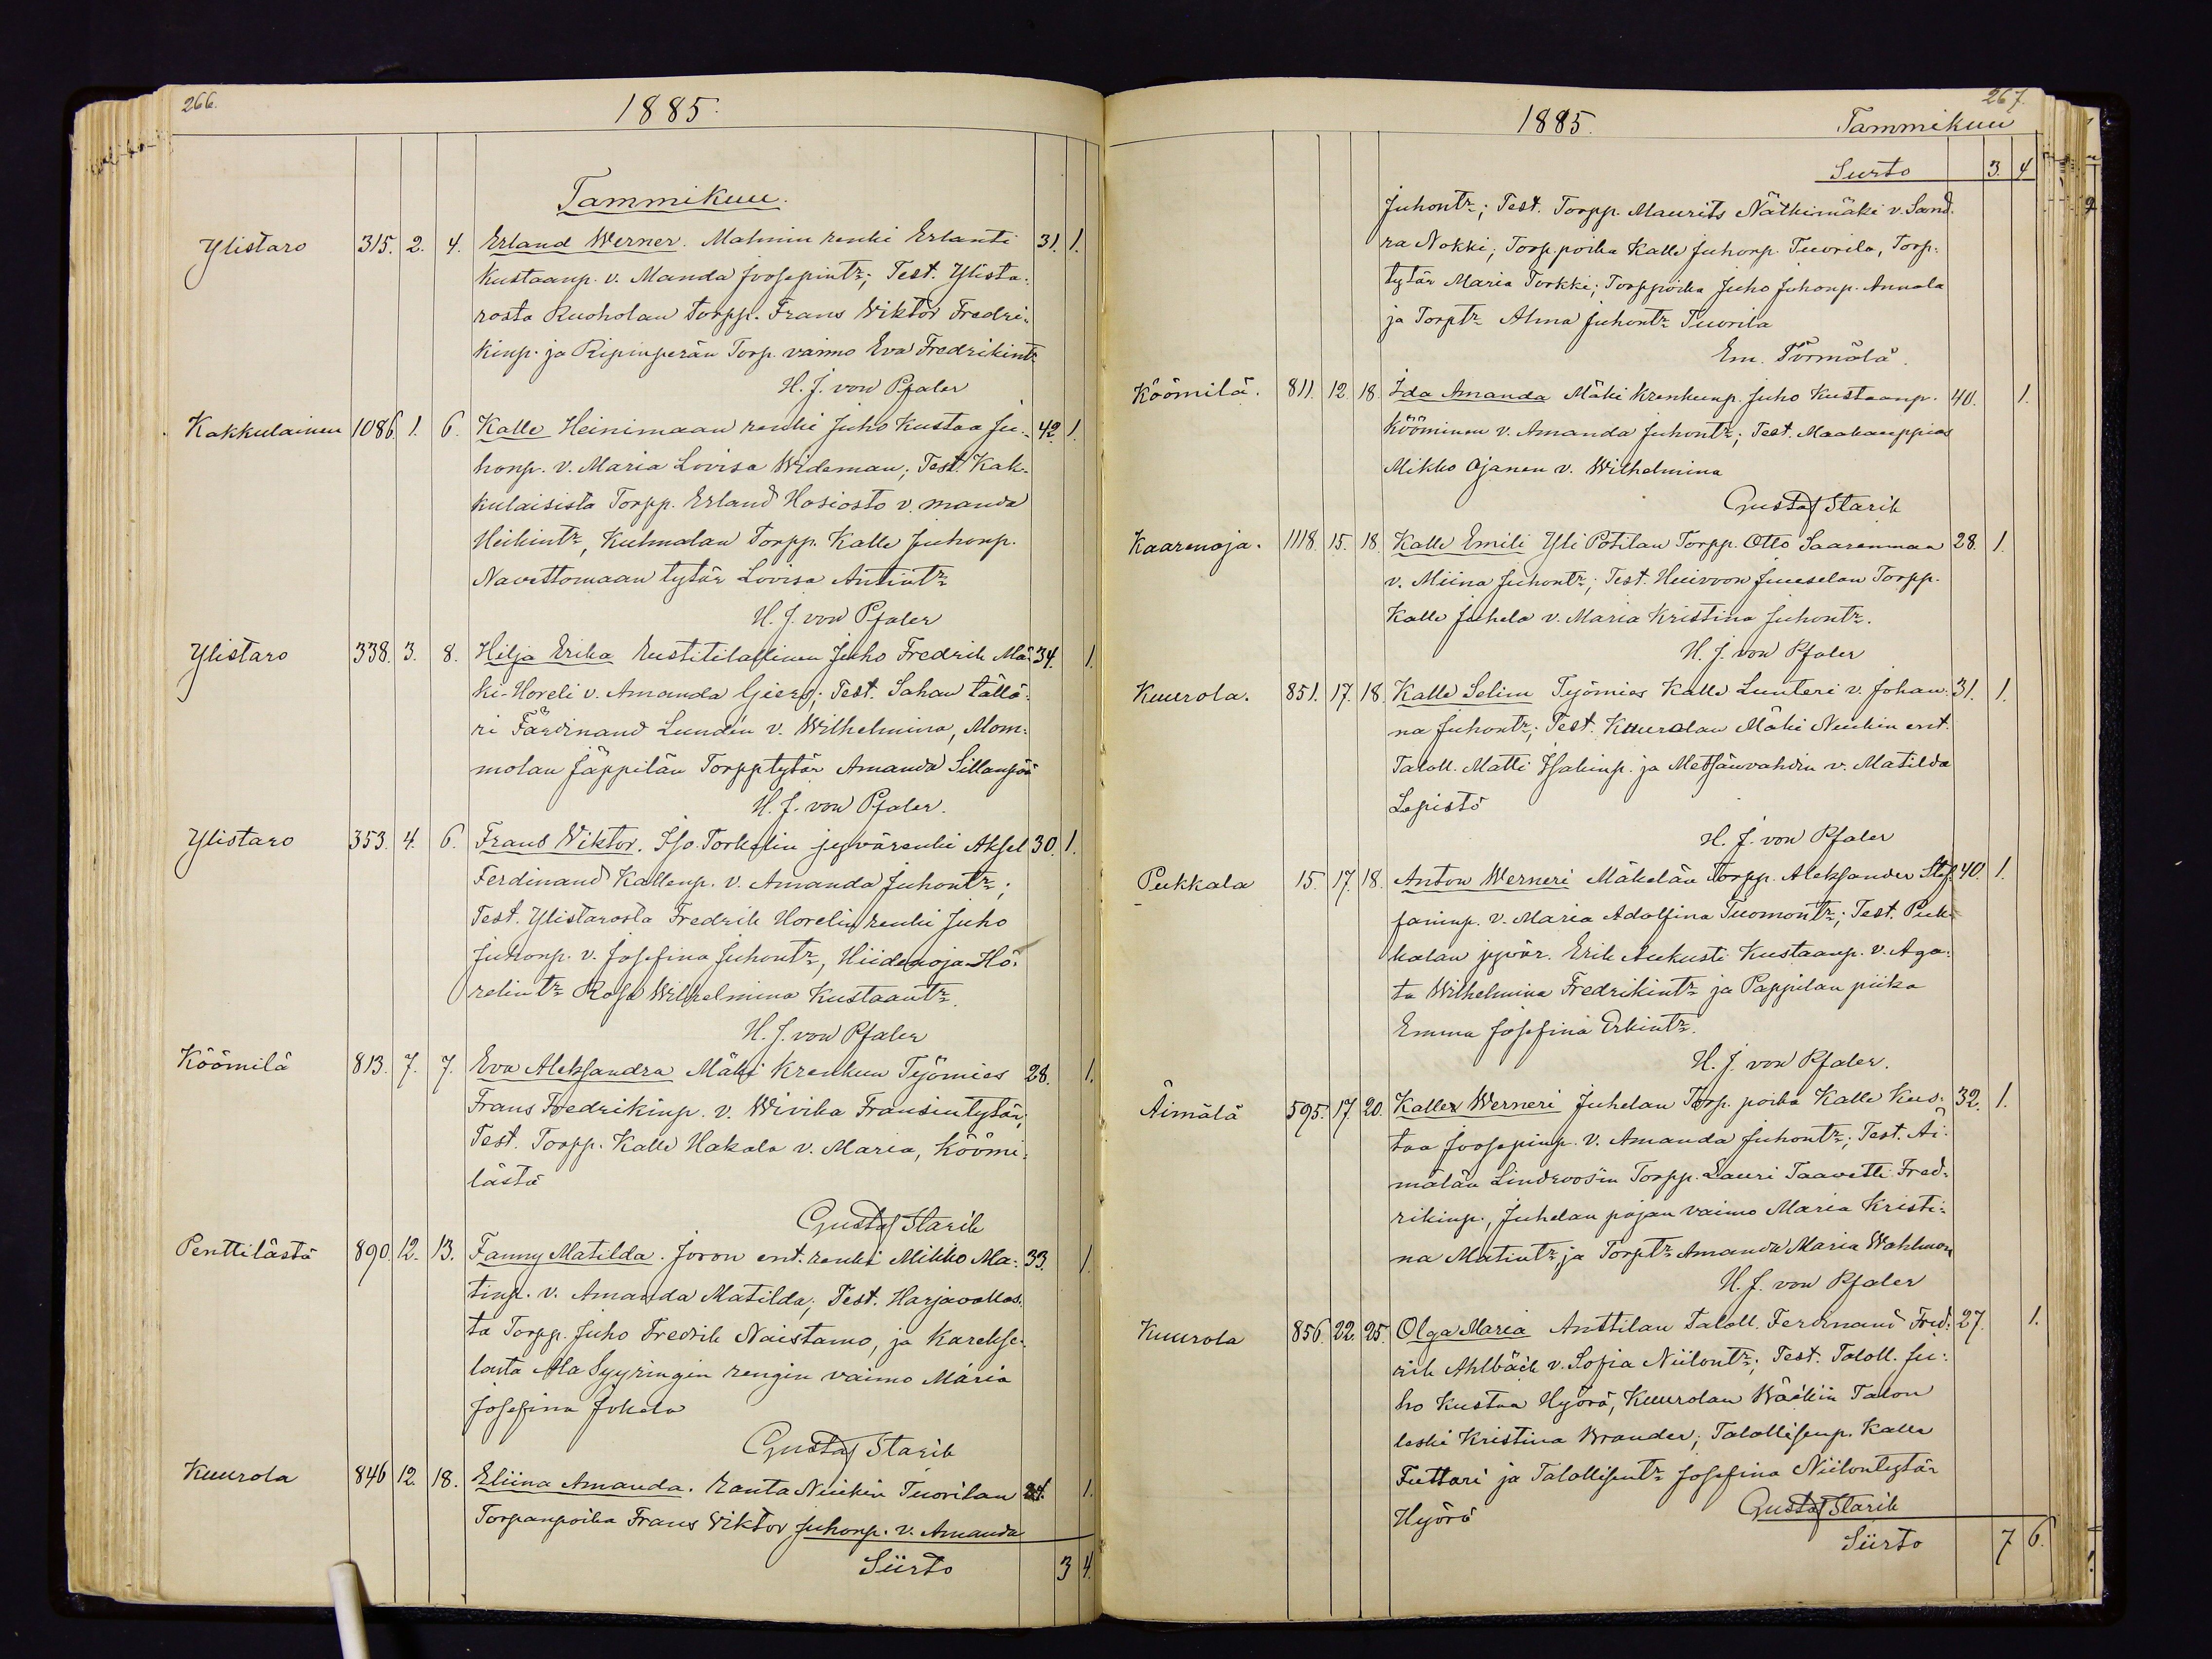 266.
1885.
Tammikuu.
Ylistaro 315. 2. 4. Erland Werner. Malmin renki Erlanti 31. 1.
Kustaanp. v. Manda Joosepintr; Test. Ylista-
rosta Ruoholan Torpp. Frans Wiktor Fredri-
kinp. ja Ripinperän Torp. vaimo Eva Fredrikintr
H. J. von Pfaler
Kakkulainen 1086. 1. 6. Kalle Heinimaan renki Juho Kustaa Ju- 42. 1.
honp. v. Maria Lovisa Wideman; Test. Kak-
kulaisista Torpp. Erland Hosiosto v. Manda
Heikintr, Kulmalan Torpp. Kalle Juhonp.
Navettomaan tytär Lovisa Antintr
H. J. von Pfaler
Ylistaro 338. 3. 8. Hilja Erika Eustitilallinen Juho Fredrik Mä- 34. 1.
ki-Horeli v. Amanda Giers; Test. Sahan tällä-
ri Färdinand Lundén v. Wilhelmina, Mom-
molan Jäppilän Torpptytär Amanda Sillanpää
H. J. von Pfaler.
Ylistaro 353. 4. 6. Frans Wiktor. Iso-Torkelin jyvärenki Aksel 30. 1.
Ferdinand Kallenp. v. Amanda Juhontr;
Test. Ylistarosta Fredrik Horelin renki Juho
Juhonp. v. Josefina Juhontr, Hiidenoja-Ho-
relintr Rosa Wilhelmina Kustaantr.
H. J. von Pfaler
Köömilä 813. 7. 7. Eva Aleksandra Mäki Krenkun Työmies 28. 1.
Frans Fredrikinp. v. Wivika Fransintytär;
Test. Torpp. Kalle Hakala v. Maria, Köömi-
lästä
Gustaf Starik
Penttilästä 890. 12. 13. Fanny Matilda. Joron ent. renki Mikko Ma- 33. 1.
tinp. v. Amanda Matilda; Test. Harjavallas-
ta Torpp. Juho Fredrik Naistamo, ja Karekse-
lasta Ala Syyringin rengin vaimo Maria
Josefina Jokela
Gustaf Starik
Kuurola 846 12. 18. Eliina Amanda. Ranta Neukin Tuorilan 24. 1.
Torpanpoika Frans Viktor Juhonp. v. Amanda
Siirto 3 4.
267.
1885. Tammikuu
Siirto 3. 4
Juhontr; Test. Torpp. Maurits Nätkinmäki v. Sand-
ra Nokki; Torp.poika Kalle Juhonp. Tuorila, Torp-
tytär Maria Torkki; Torppoika Juho Juhonp. Annala
ja Torptr Alma Juhontr Tuorila
Em. Törmälä.
Köömilä. 811. 12. 18. Ida Amanda Mäki Krenkunp. Juho Kustaanp. 40. 1.
Kööminen v. Amanda Juhontr; Test. Maakauppias
Mikko Ojanen v. Wilhelmina
Gustaf Starik
Kaarenoja. 1118. 15. 18. Kalle Emili Yli Potilan Torpp. Otto Saarenmaa 28. 1.
v. Miina Juhontr; Test. Huivoon Juuselan Torpp.
Kalle Juhela v. Maria Kristina Juhontr.
H. J. von Pfaler
Kuurola. 851. 17. 18. Kalle Selim Työmies Kalle Lunteri v. Johan- 31. 1.
na Juhontr; Test. Kuurolan Mäki Neukin ent.
Taloll. Matti Isakinp. ja Metsänvahdin v. Matilda
Lepistö
H. J. von Pfaler
Peukkala 15. 17. 18. Anton Werneri Mäkelän Torpp. Aleksander Stef- 40. 1.
faninp. v. Maria Adolfina Tuomontr; Test. Peuk-
kalan jyvär. Erik Aukusti Kustaanp. v. Aga-
ta Wilhelmina Fredrikintr ja Pappilan piika
Emma Josefina Erkintr.
H. J. von Pfaler.
Äimälä 595. 17 20. Kalle Werneri Juhelan Torp. poika Kalle Kus- 32. 1.
taa Joosepinp. v. Amanda Juhontr; Test. Äi-
mälän Lindroosin Torpp. Lauri Taavetti Fred-
rikinp., Juhelan pojan vaimo Maria Kristi-
na Matintr ja Torptr Amanda Maria Wahlman
H. J. von Pfaler
Kuurola 856. 22. 25. Olga Maria Anttilan Taloll. Ferdinand Fred- 27. 1.
rik Ahlbäck v. Sofia Niilontr; Test. Taloll. Ju-
ho Kustaa Hyörä, Kuurolan Wäckin Talon
leski Kristina Brander; Talollisenp. Kalle
Futtari ja Talollisentr Josefina Niilontytär
Hyörä Gustaf Starik
Siirto 7 6.